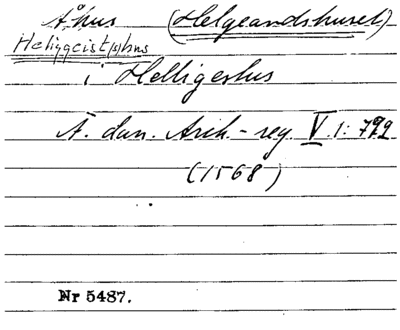 Åhus (Helgeandshuset)
Heliggeist(s)hus
i Helligesthus
Ä. dan. Arik.-reg V. 1: 792
(1568)
Nr 5487.